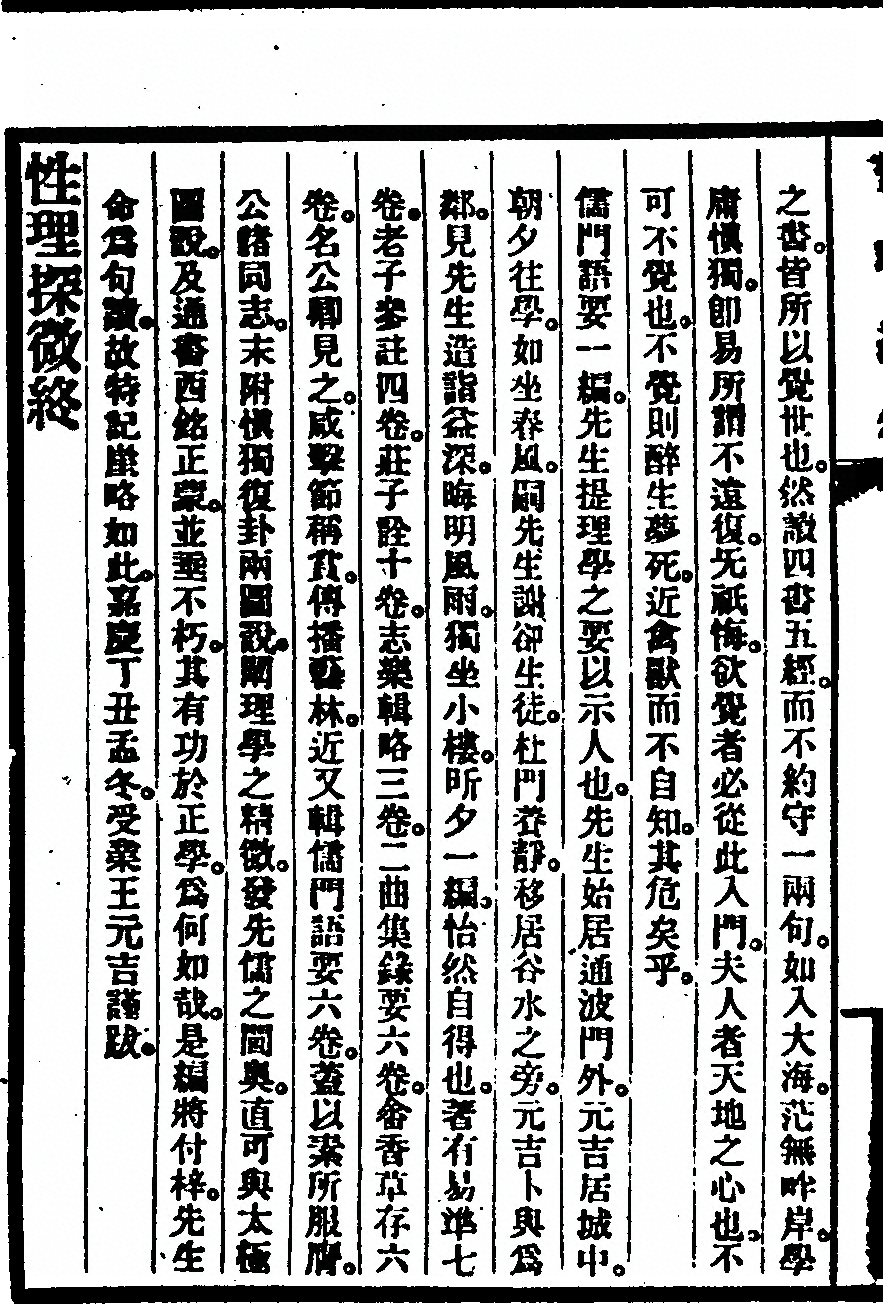 之書。皆所以覺世也。然讀四書五經。而不約守一兩句。如入大海。茫無畔岸。學
庸慎獨。卽易所謂不遠復。无祇悔。欲覺者必從此入門。夫人者天地之心也。不
可不覺也。不覺則醉生夢死。近禽獸而不自知。其危矣乎。
儒門語要一編。先生提理學之要以示人也。先生始居通波門外。元吉居城中。
朝夕往學。如坐春風。嗣先生謝卻生徒。杜門養靜。移居谷水之旁。元吉卜與爲
鄰。見先生造詣益深。晦明風雨。獨坐小樓。昕夕一編。怡然自得也。著有易準七
卷。老子參註四卷。莊子詮十卷。志樂輯略三卷。二曲集錄要六卷。畬香草存六
卷。名公卿見之。咸擊節稱賞。傳播藝林。近又輯儒門語要六卷。蓋以素所服膺
公諸同志。末附慎獨復卦兩圖說。闡理學之精微。發先儒之閫奧。直可與太極
圖說。及通書西銘正蒙。並垂不朽。其有功於正學。爲何如哉。是編將付梓。先生
命爲句讀。故特記崖略如此。嘉慶丁丑孟冬。受業王元吉謹跋。
性理探微終